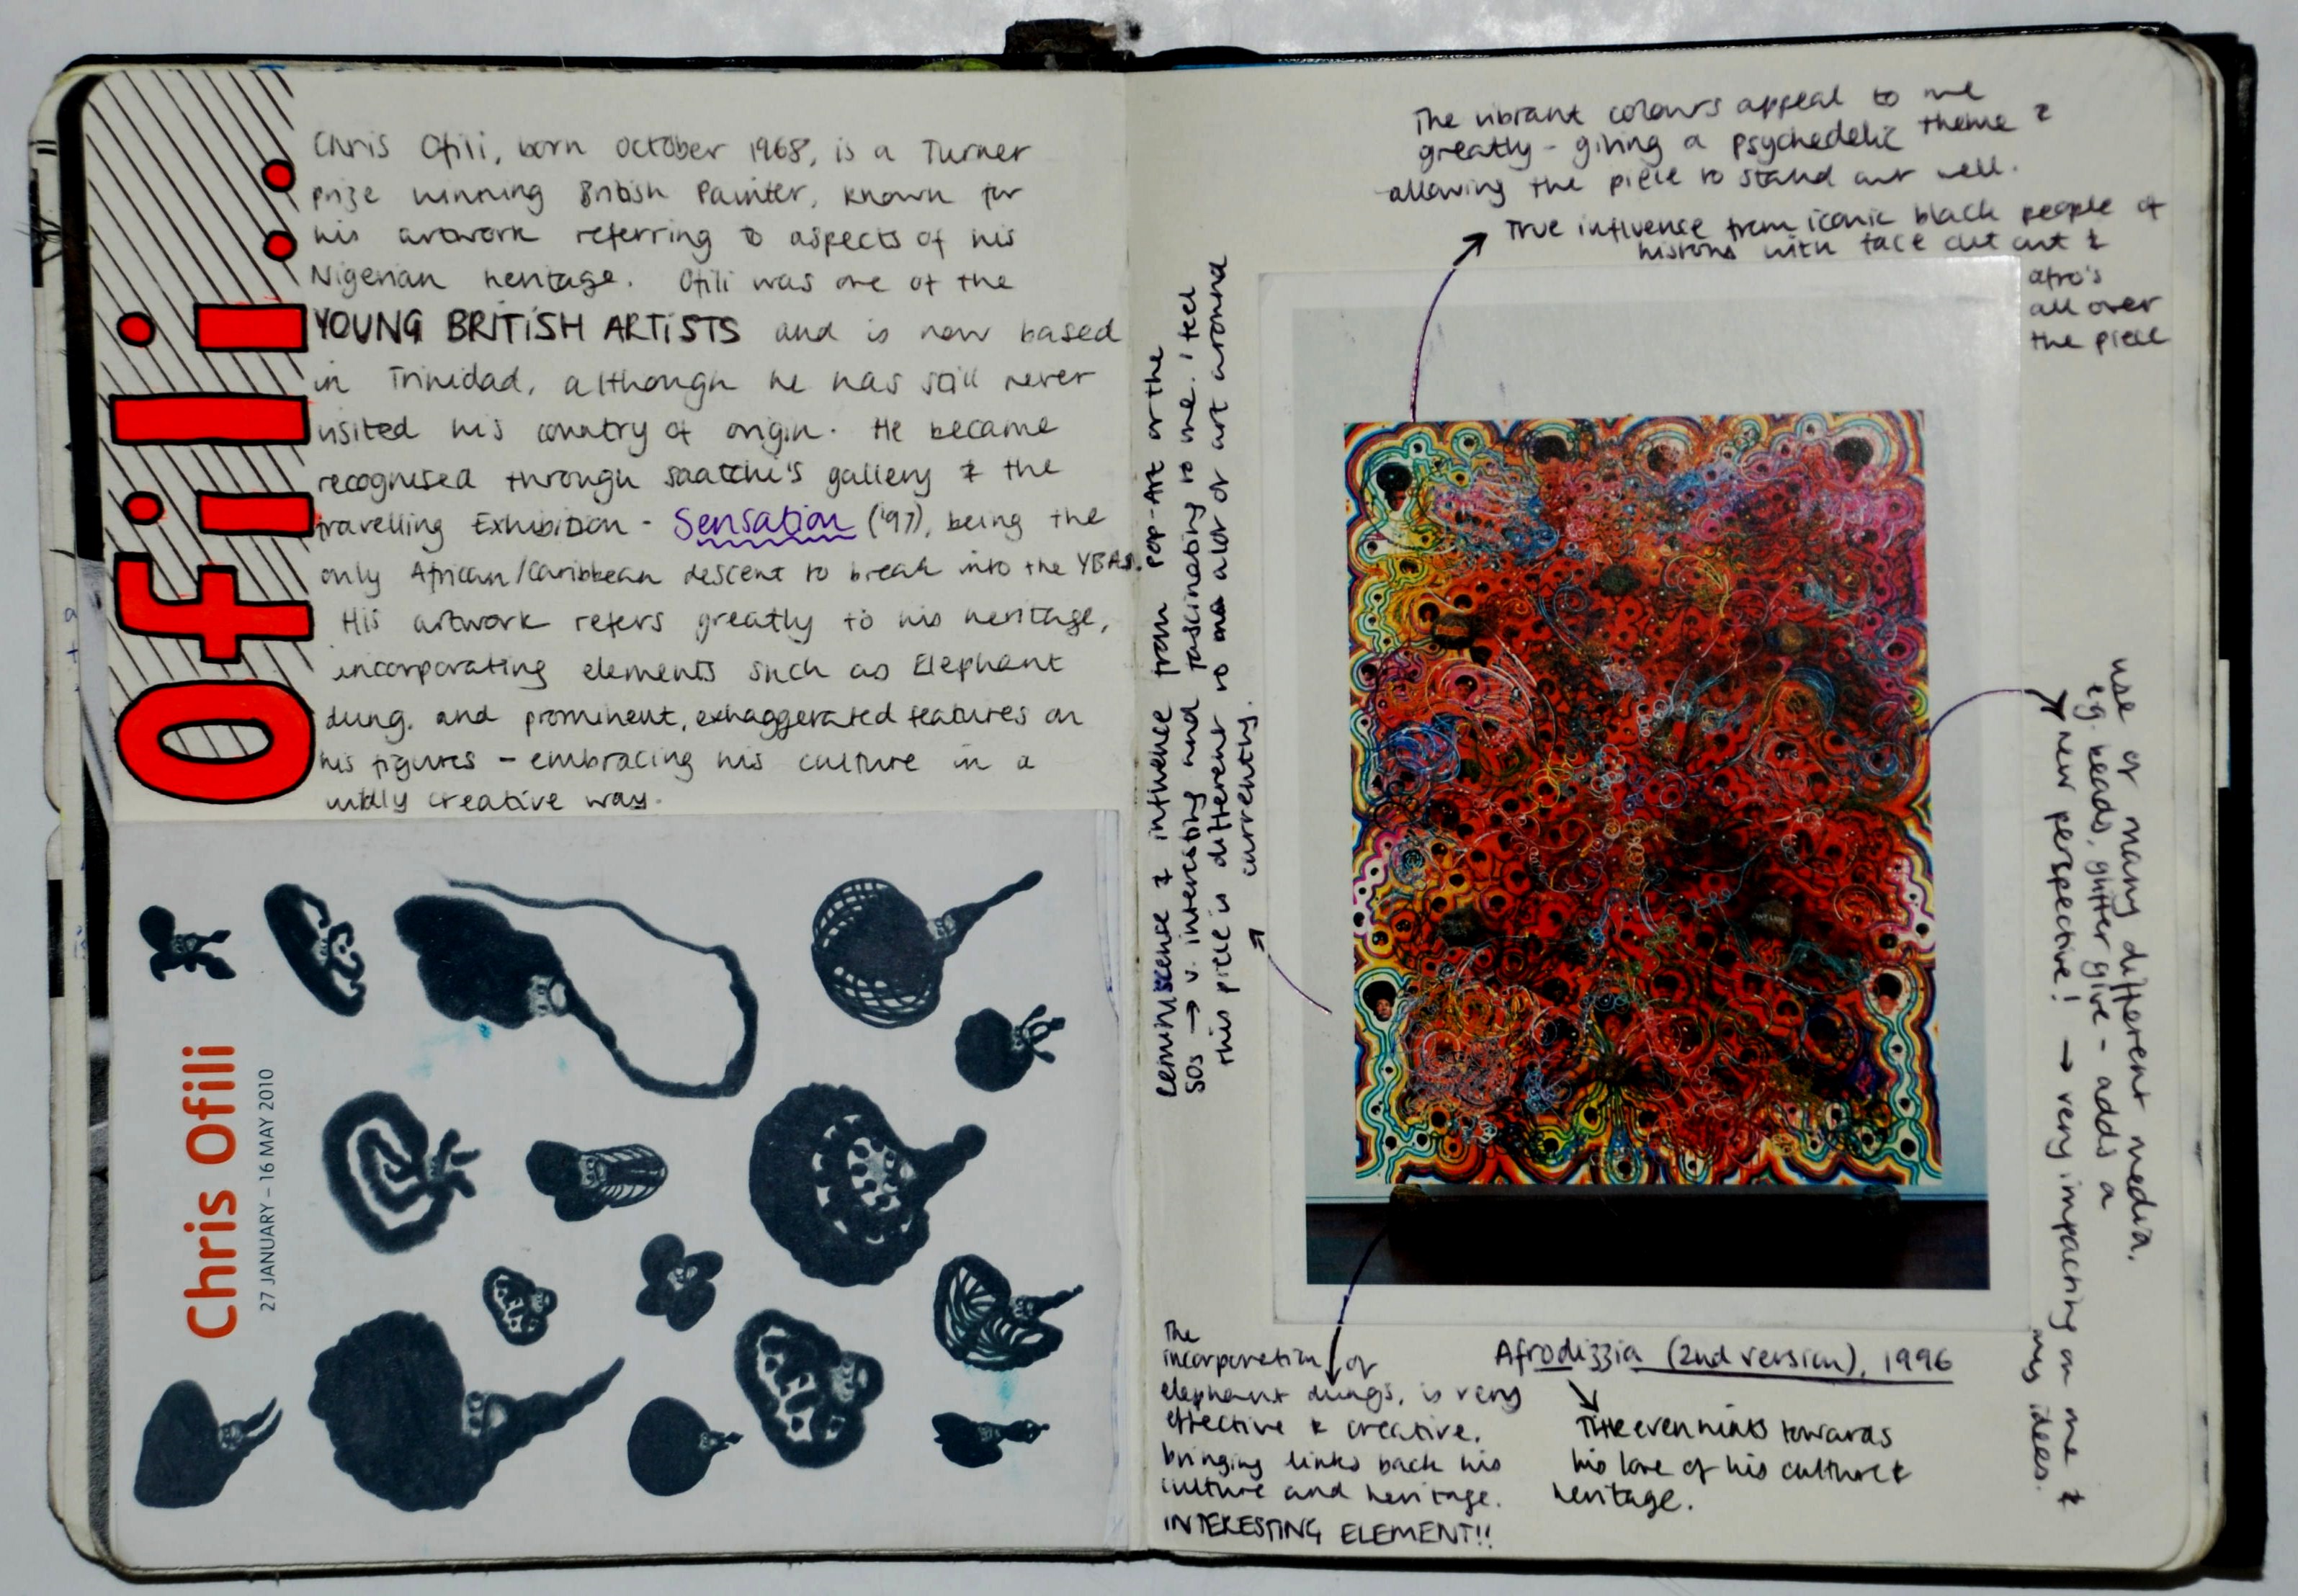 Ofili:
Chris Ofili, born October 1968, is a Turner
prize winning British Painter, known for
his artwork referring to aspects of his
Nigerian heritage. Ofili was one of the
YOUNG BRITISH ARTISTS and is now based
in Trinidad, although he has still never
visited his country of origin. He became
recognised through saatchi's gallery & the
travelling Exhibition - Sensation ('97), being the
only African/Caribbean descent to break into the YBAs.
His artwork refers greatly to his heritage,
incorporating elements such as Elephant
dung, and prominent, exhaggerated features on
his figures - embracing his culture in a
wildly creative way.
Chris Ofili
27 JANUARY – 16 MAY 2010
The vibrant colours appeal to me
greatly - giving a psychedelic theme &
allowing the piece to stand out well.
True influence from iconic black people of
history with face cut out &
afro's
all over
the piece
reminiscence & influence from Pop-Art or the
50s → v. interesting and fascinating to me. I feel
this piece is different to a lot of art around
currently.
use of many different media.
eg. beads, glitter give - adds a
new perspective! → very impacting on me &
my ideas.
The
incorporation of
elephant dungs, is very
effective & creative.
bringing links back his
culture and heritage.
INTERESTING ELEMENT!!
Afrodizzia (2nd version), 1996
Title even hints towards
his love of his culture &
heritage.